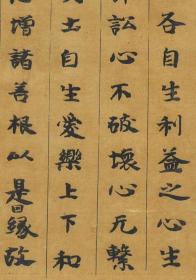 各自生利益之心生
訟心不破壞心无繫
土自生愛樂上下和
增諸善根以是因緣故